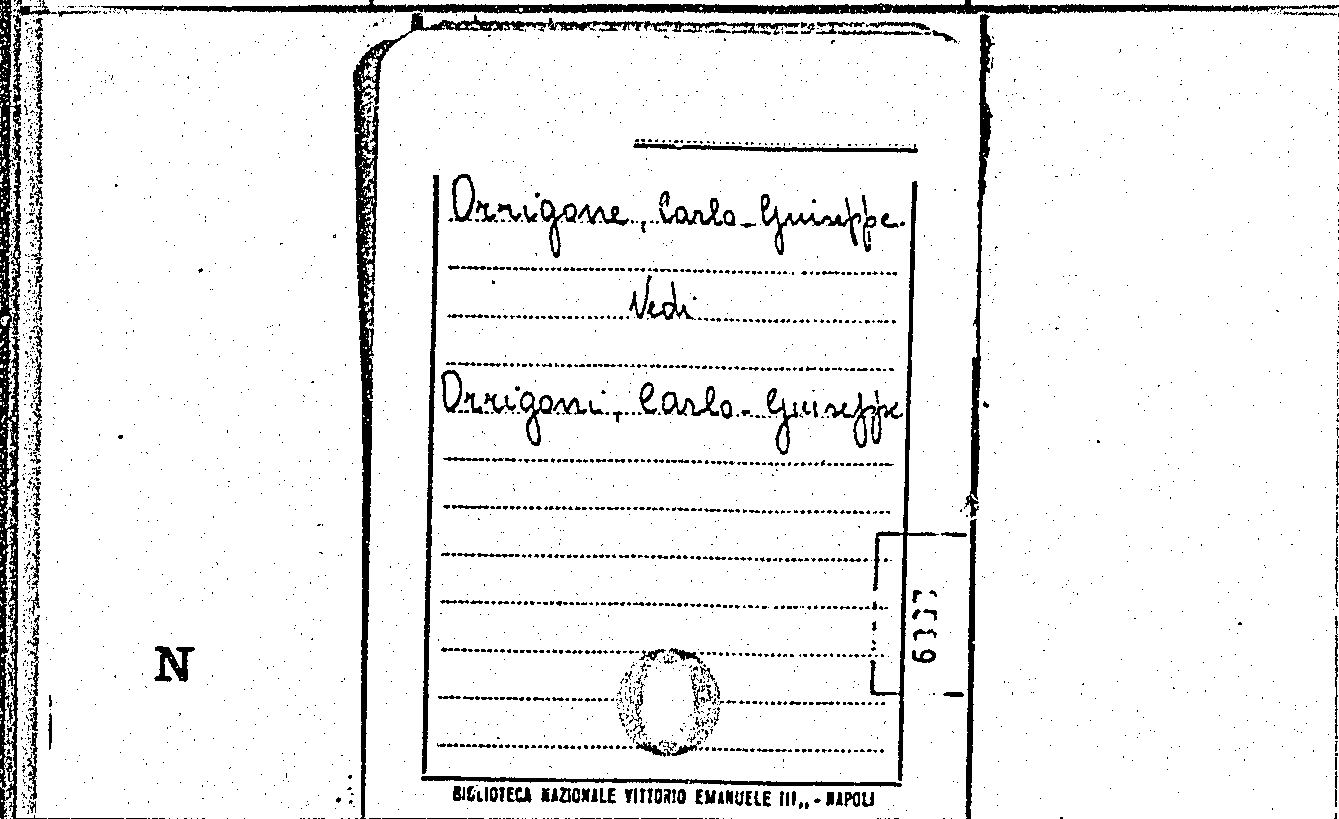 Orrigone, Carlo-Guiseppe.
Vedi
Orrigoni, Carlo-Guiseppe
N
BIBLIOTECA NAZIONALE VITTORIO EMANUELE III,, - NAPOLI